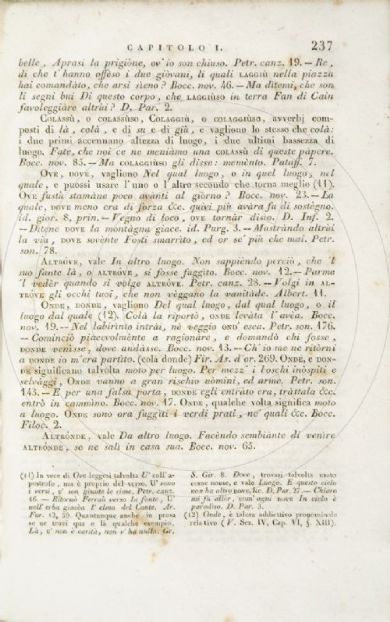 CAPITOLO I. 237
belle. Aprasi la prigióne, ov' io son chiuso. Petr. canz. 19. — Re,
di che t' hanno offéso i due gióvani, li quali LAGGIÙ nella piazza
hai comandáto, che arsi sieno? Bocc. nov. 46. — Ma dítemi, che son
li segni bui Di questo corpo, che LAGGIÙSO in terra Fan di Cain
favoleggiáre altrúi? D. Par. 2.
COLASSÙ, o COLASSÙSO, COLAGGIÙ, o COLAGGIÙSO, avverbj com-
posti di là, colà, e di su e di giù, e vagliono lo stesso che colà:
i due primi accennano altezza di luogo, i due ultimi bassezza di
luogo. Fate, noi ce ne meniámo una COLASSÙ di queste pápere.
Bocc. nov. 85. — Ma COLAGGIÙSO gli disse: meménto. Pataff. 7.
OVE, DOVE, vagliono Nel qual luogo, o in quel luogo, nel
quale, e puossi usare l' uno o l' altro secondo che torna meglio (11).
OVE fustù stamáne poco avánti al giorno? Bocc. nov. 23. — La
quale, DOVE meno era di forza &c. quivi più avára fu di sostégno.
id. gior. 8, prin. — Vegno di loco, OVE tornár disio. D. Inf. 2.
— Dítene DOVE la montágna giace. id. Purg. 3. — Mostrándo altrúi
la via, DOVE sovénte Fosti smarríto, ed or se' più che mai. Petr.
son. 78.
ALTRÓVE, vale In altro luogo. Non sappiéndo perciò, che 'l
suo fante là, o ALTRÓVE, si fosse fuggíto. Bocc. nov. 12. — Parma
'l vedér quando si volge ALTROVE. Petr. canz. 28. — Volgi in AL-
TRÓVE gli occhi tuoi, che non véggano la vanitáde. Albert. 11.
ONDE, DONDE, vagliono Del qual luogo, dal qual luogo, o il
luogo dal quale (12). Colà la riportò, ONDE leváta l' avéa. Bocc.
nov. 49. — Nel labirínto intrái, nè veggio ond' esca. Petr. son. 176.
— Cominciò piacevolménte a ragionáre, e domandò chi fosse,
DONDE venísse, dove andásse. Bocc. nov. 43. — Ch' io me ne ritórni
a DONDE io m' era partíto. (colà donde) Fir. As. d' or. 269. ONDE, e DON-
DE significano talvolta moto per luogo. Per mezz' i boschi inóspiti e
selvággi, ONDE vanno a gran rischio uómini, ed arme. Petr. son.
143. — E per una falsa porta, DONDE egli entráto era, tráttala &c.
entrò in cammíno. Bocc. nov. 17. ONDE, qualche volta significa moto
a luogo. ONDE sono ora fuggíti i verdi prati, ne' quali &c. Bocc.
Filoc. 2.
ALTRÓNDE, vale Da altro luogo. Facéndo sembiánte di veníre
ALTRÓNDE, se ne salì in casa sua. Bocc. nov. 65.
(11) In vece di Ove leggesi talvolta U' coll' a-
postrofo, ma è proprio del verso. U' sono
i versi, u' son giunte le rime. Petr. canz.
46. — Ritornò Ferraù verso la fonte, U'
nell' erba giacéa l' elmo del Conte. Ar.
Fur. 12, 59. Quantunque anche in prosa
se ne trovi qua e là qualche esempio.
Là, u' non è carità, non v' ha nulla. Gr.
S. Gir. 8. Dove, trovasi talvolta usato
come nome, e vale Luogo. E questo cielo
non ha altro DOVE, &c. D. Par. 27. — Chiaro
mi fu allór, com' ogni DOVE In cielo è
paradíso. D. Par. 3.
(12) Onde, è talora addiettivo pronominale
relativo (V. Sez. IV, Cap. VI, § XIII).